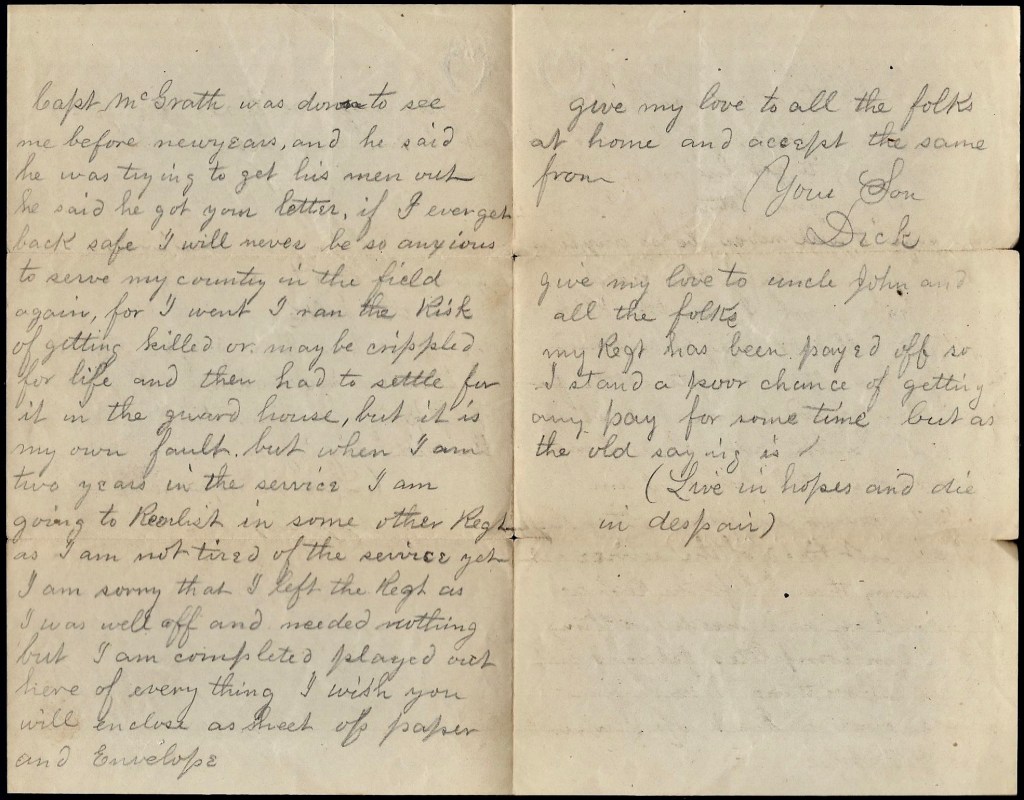 Capt McGrath was down to see
me before newyears, and he said
he was trying to get his men out
he said he got your letter, if I ever get
back safe I will never be so anxious
to serve my country in the field
again, for I went I ran the Risk
of getting killed or maybe crippled
for life and then had to settle for
it in the guard house, but it is
my own fault. but when I am
two years in the service I am
going to Reenlist in some other Regt
as I am not tired of the service yet
I am sorry that I left the Regt as
I was well off and needed nothing
but I am completed played out
here of every thing I wish you
will enclose a sheet off paper
and Envelope
give my love to all the folks
at home and accept the same
from Your Son
Dick
give my love to uncle John and
all the folks
my Regt has been payed off so
I stand a poor chance of getting
any pay for some time but as
the old saying is
(Live in hopes and die
in despair)